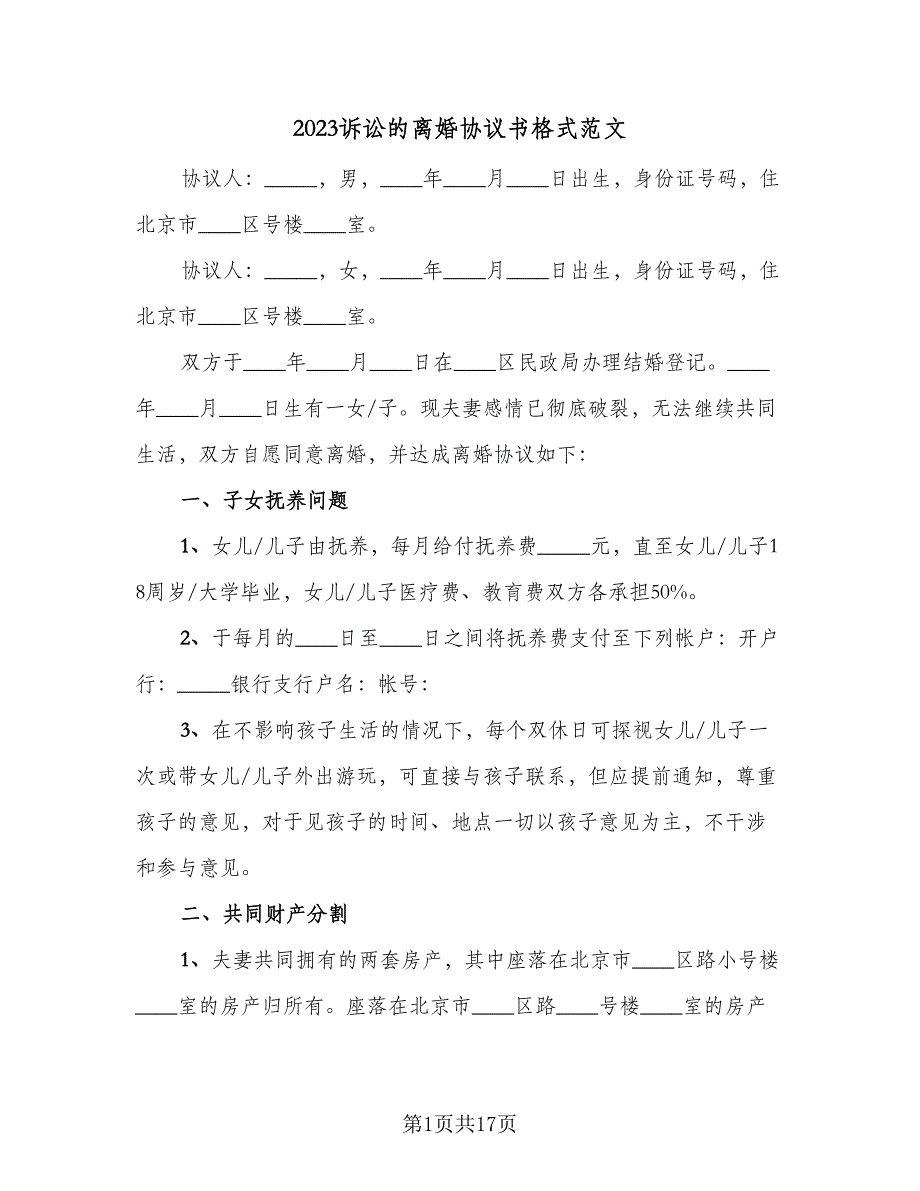 2023诉讼的离婚协议书格式范文
协议人：_____，男，____年____月____日出生，身份证号码，住
北京市____区号楼____室。
协议人：_____，女，____年____月____日出生，身份证号码，住
北京市____区号楼____室。
双方于____年____月____日在____区民政局办理结婚登记。____
年____月____日生有一女/子。现夫妻感情已彻底破裂，无法继续共同
生活，双方自愿同意离婚，并达成离婚协议如下：
一、子女抚养问题
1、女儿/儿子由抚养，每月给付抚养费_____元，直至女儿/儿子1
8周岁/大学毕业，女儿/儿子医疗费、教育费双方各承担50%。
2、于每月的____日至____日之间将抚养费支付至下列帐户：开户
行：_____银行支行户名：帐号：
3、在不影响孩子生活的情况下，每个双休日可探视女儿/儿子一
次或带女儿/儿子外出游玩，可直接与孩子联系，但应提前通知，尊重
孩子的意见，对于见孩子的时间、地点一切以孩子意见为主，不干涉
和参与意见。
二、共同财产分割
1、夫妻共同拥有的两套房产，其中座落在北京市____区路小号楼
____室的房产归所有。座落在北京市____区路____号楼____室的房产
第1页共17页